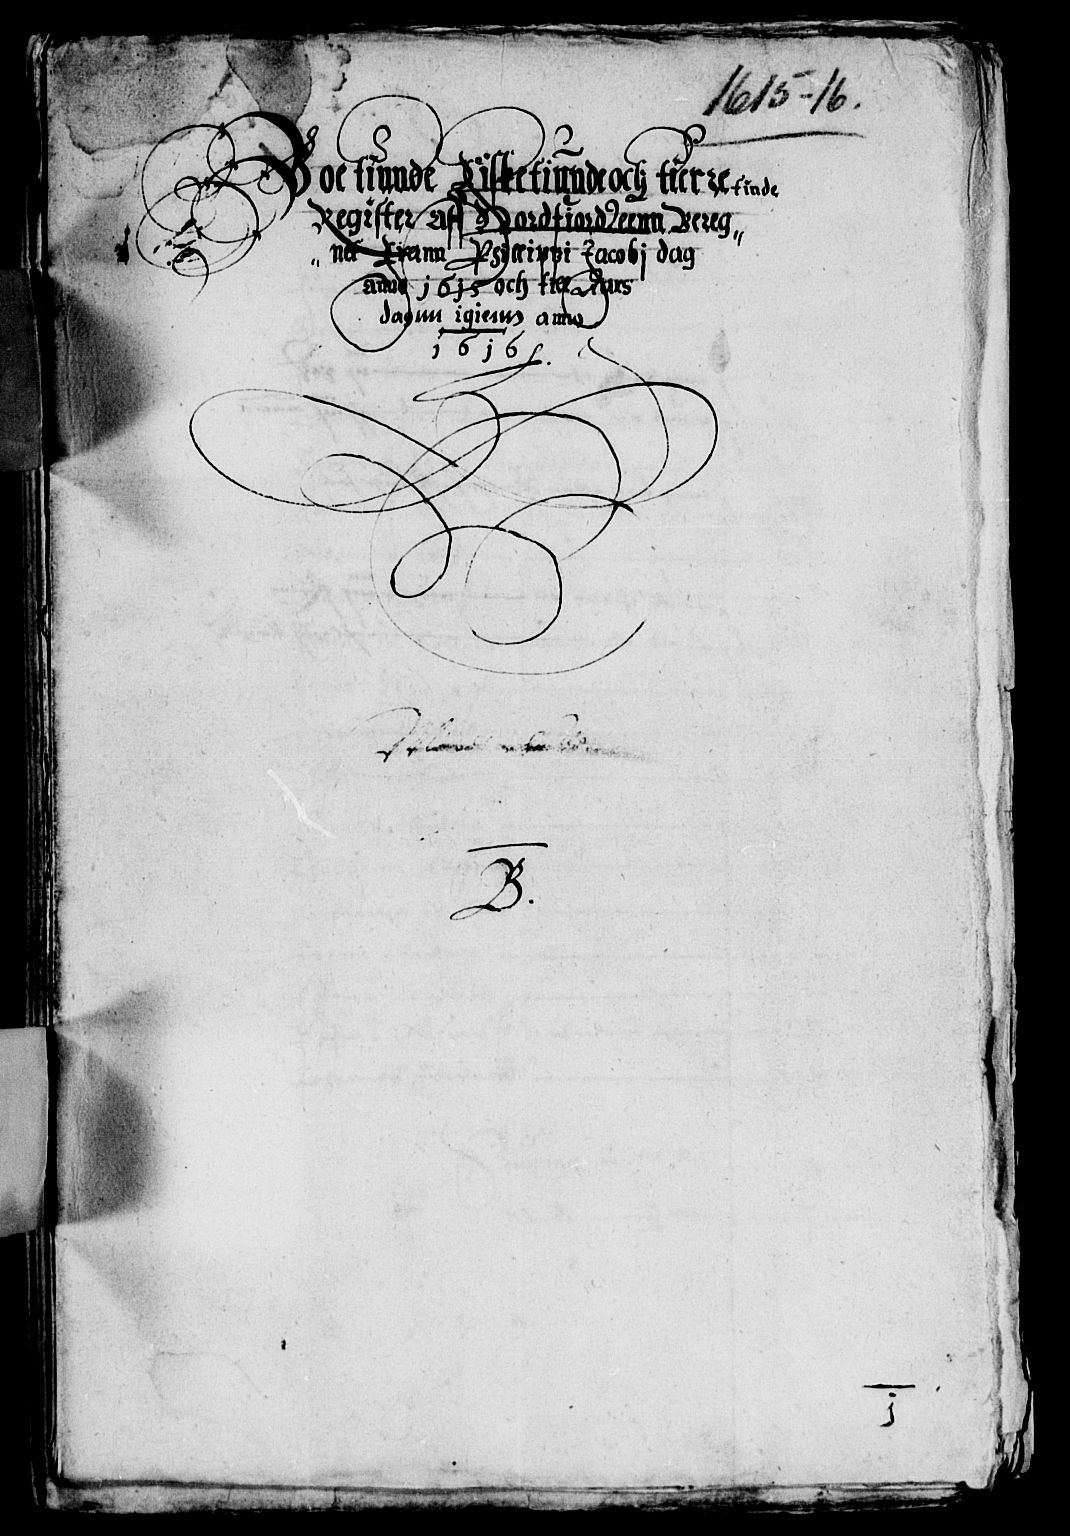 1615-16.
Boe tiunde Fiske tiunde och tierre tinde
Register Aff Nordfiord Leenn Bereg„
„net Frann Phillippi Jacobj dag
anno 1615 och till Aars
dagenn igienn anno
1616
B.
j